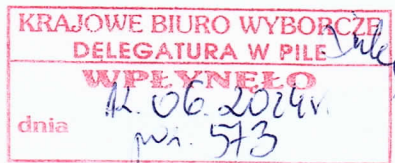 KRAJOWE BIURO WYBORCZE
DELEGATURA W PILE
WPŁYNĘŁO
12.06.2024r.
dnia
573